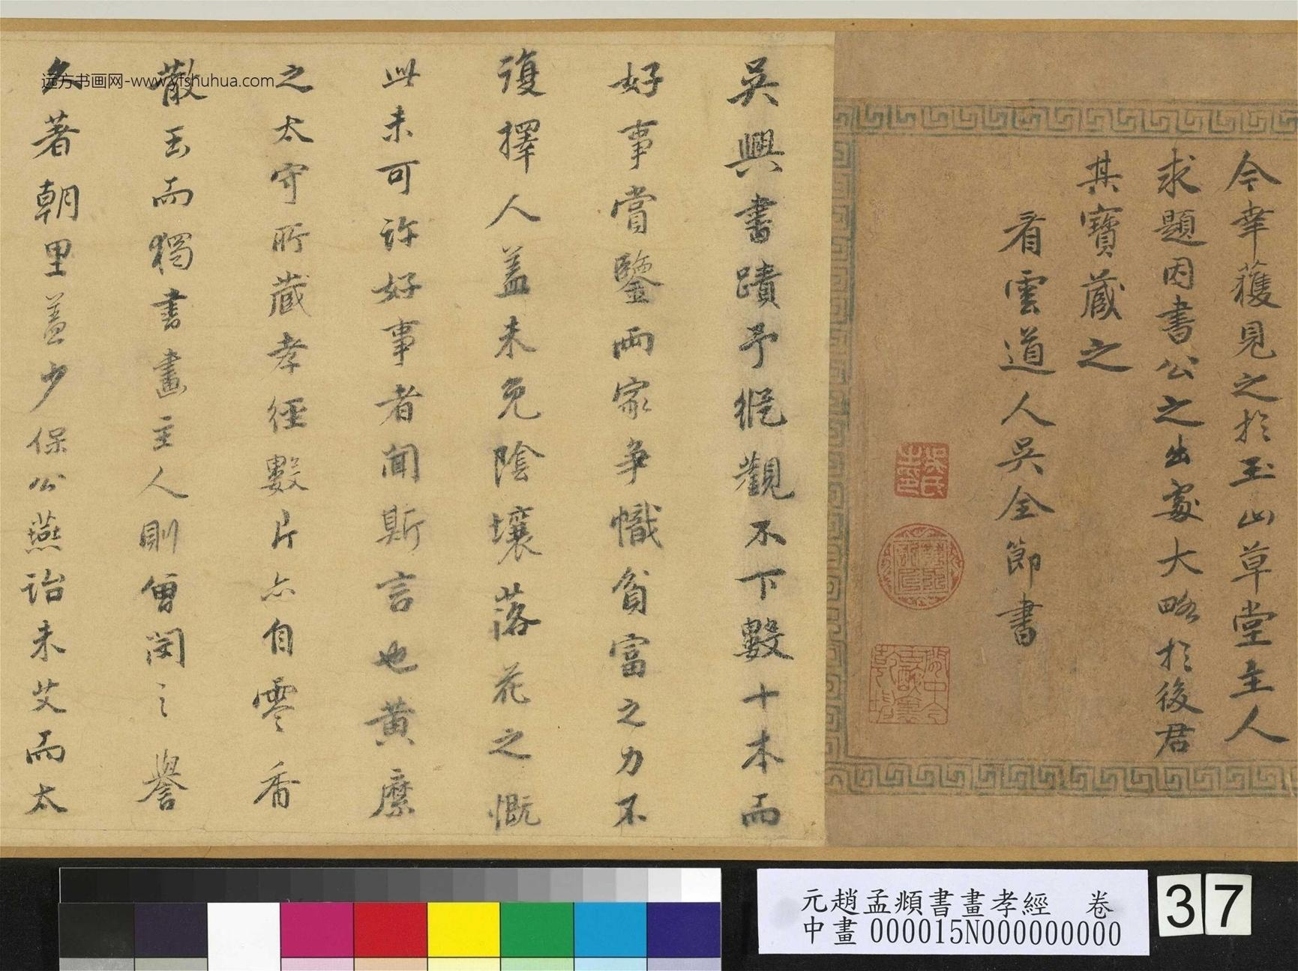 今幸獲見之於玉山草堂主人
求題因書公之出處大略於後君
其寶藏之
看雲道人吳全節書
吳氏
吳興書蹟予縱觀不下數十本而
好事賞鑒兩家爭幟貧富之力不
復擇人蓋未免陰壤落花之慨
此未可許好事者聞斯言也黃麋
之太守所藏孝徑數片亦自零香
散玉而獨書畫主人則曾閔之譽
久著朝里蓋少保公燕詒未艾而太
远方书画网-www.yfshuhua.com
元趙孟頫書畫孝經 卷
中畫 000015N000000000
37